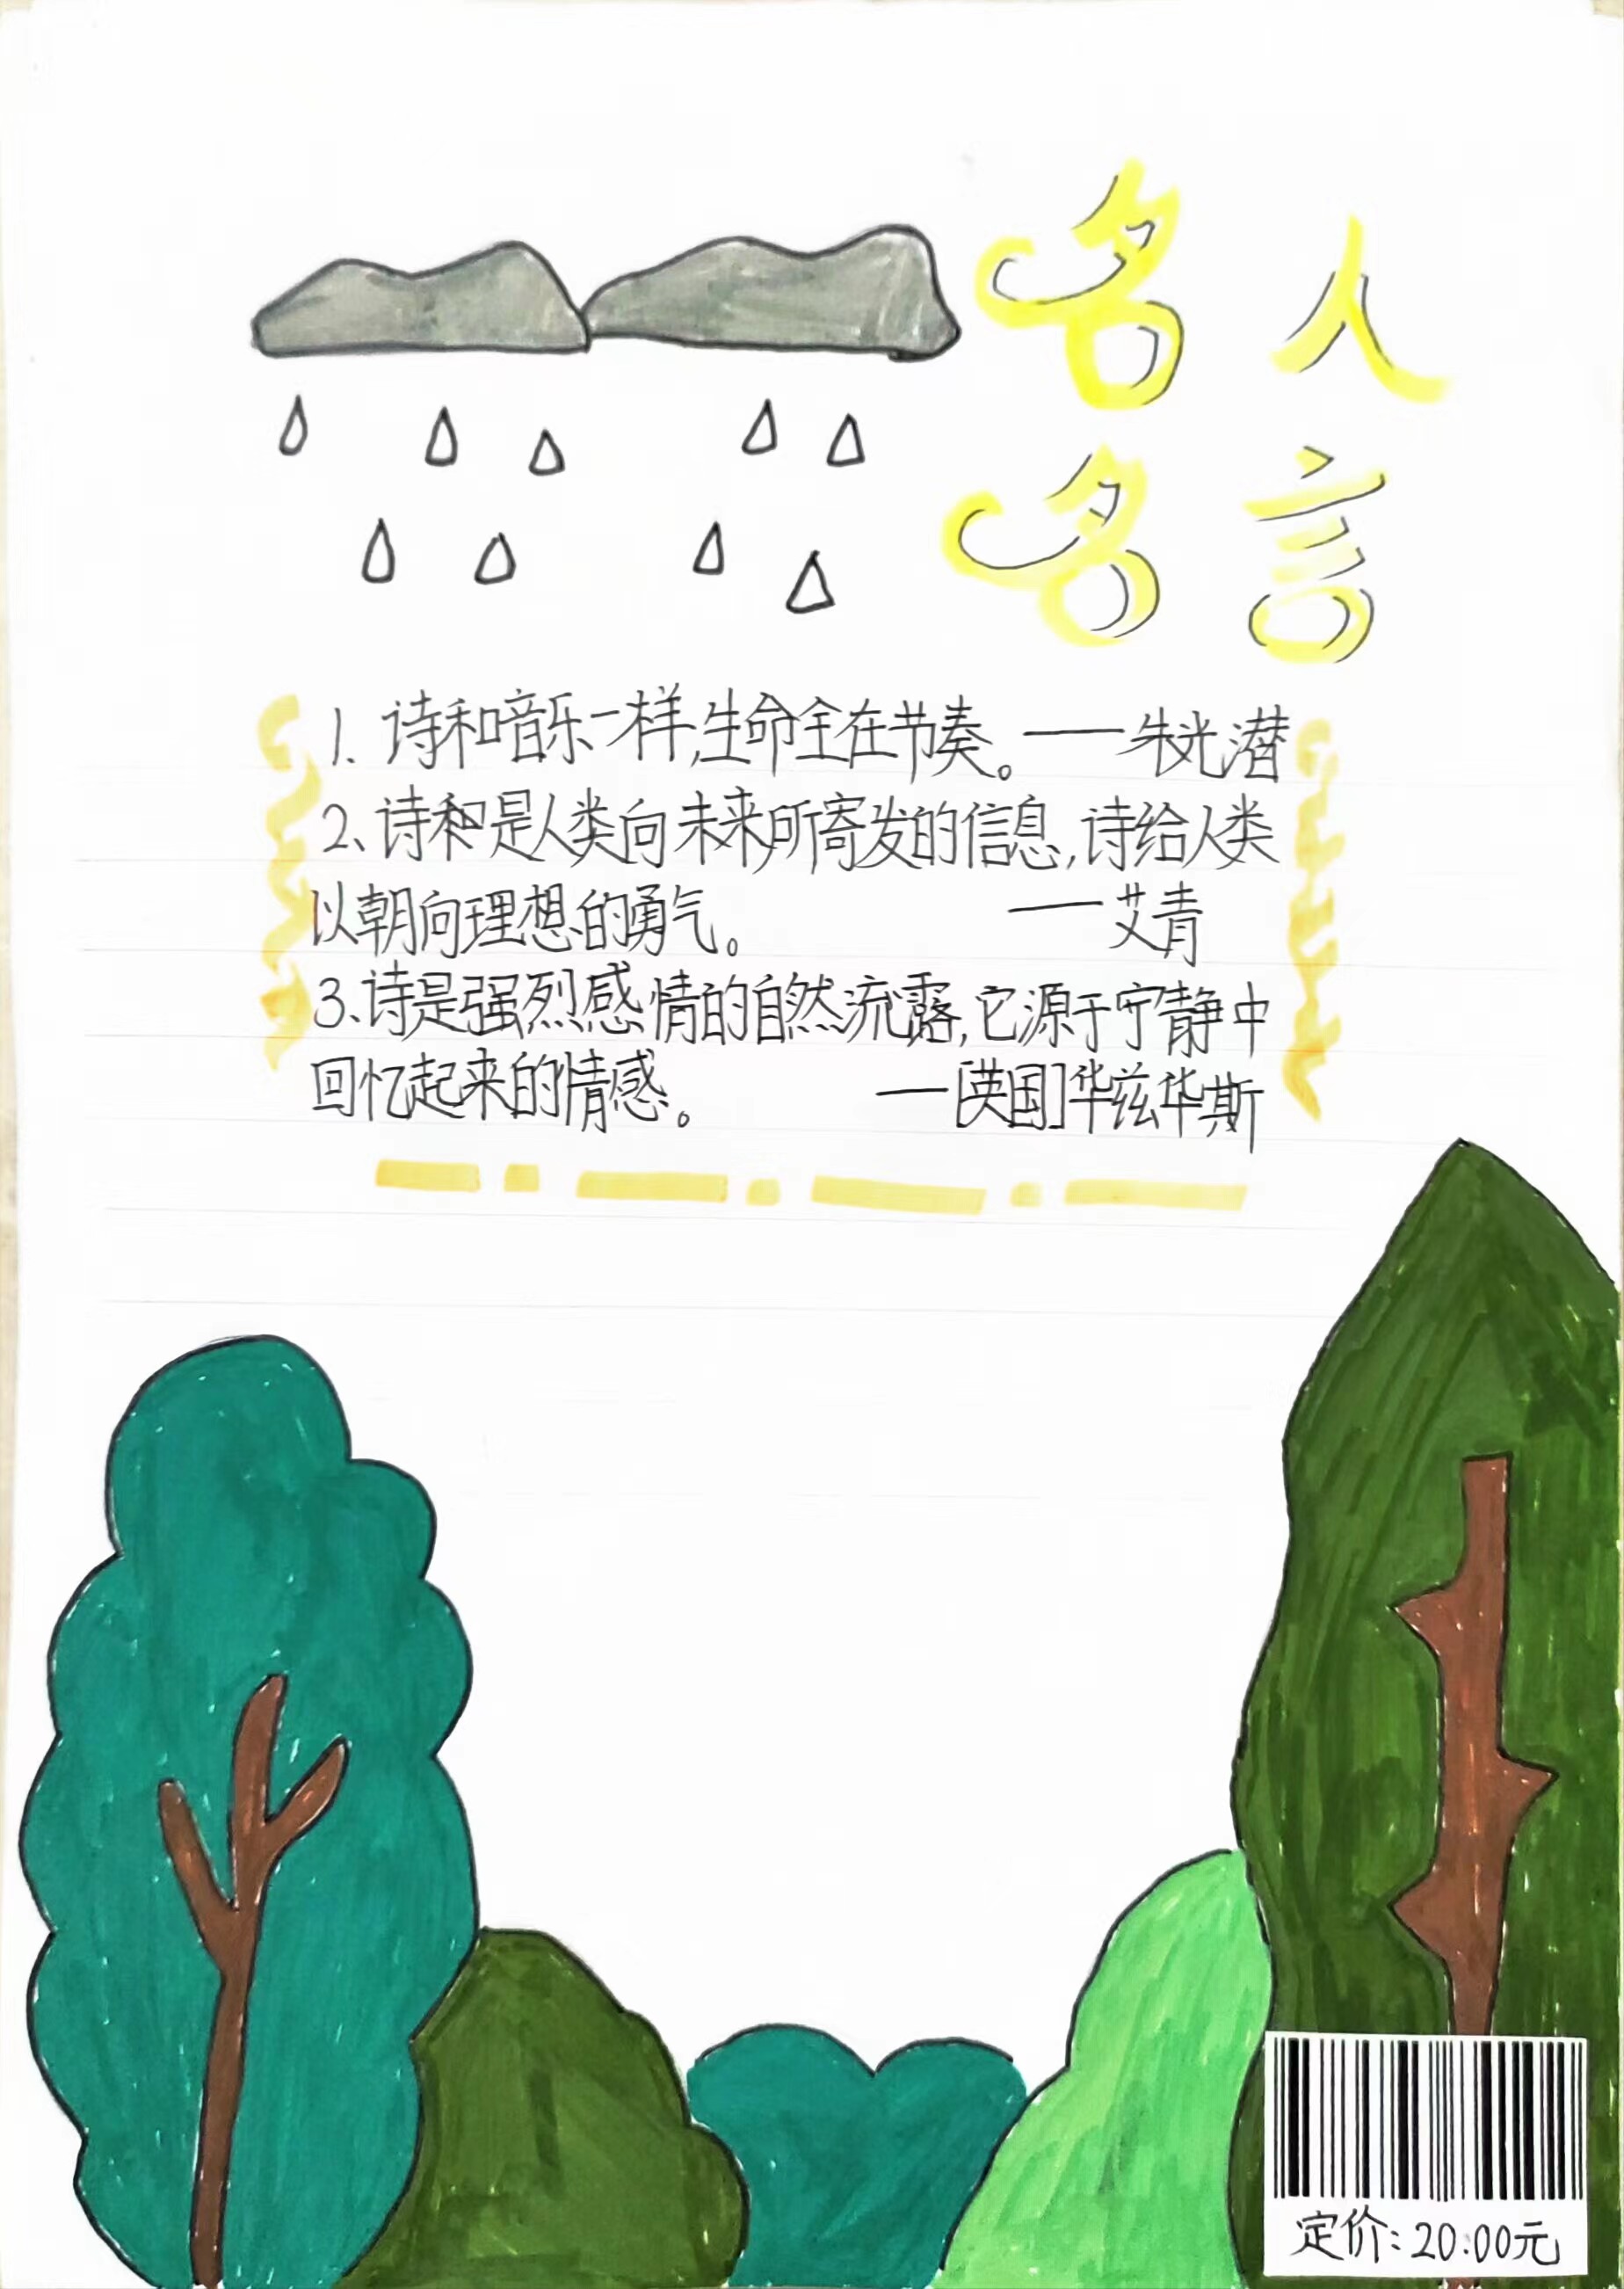 名人
名言
1、诗和音乐一样,生命全在节奏。——朱光潜
2、诗和是人类向未来所寄发的信息,诗给人类
以朝向理想的勇气。 ——艾青
3、诗是强烈感情的自然流露,它源于宁静中
回忆起来的情感。 ——[英国]华兹华斯
定价:20.00元